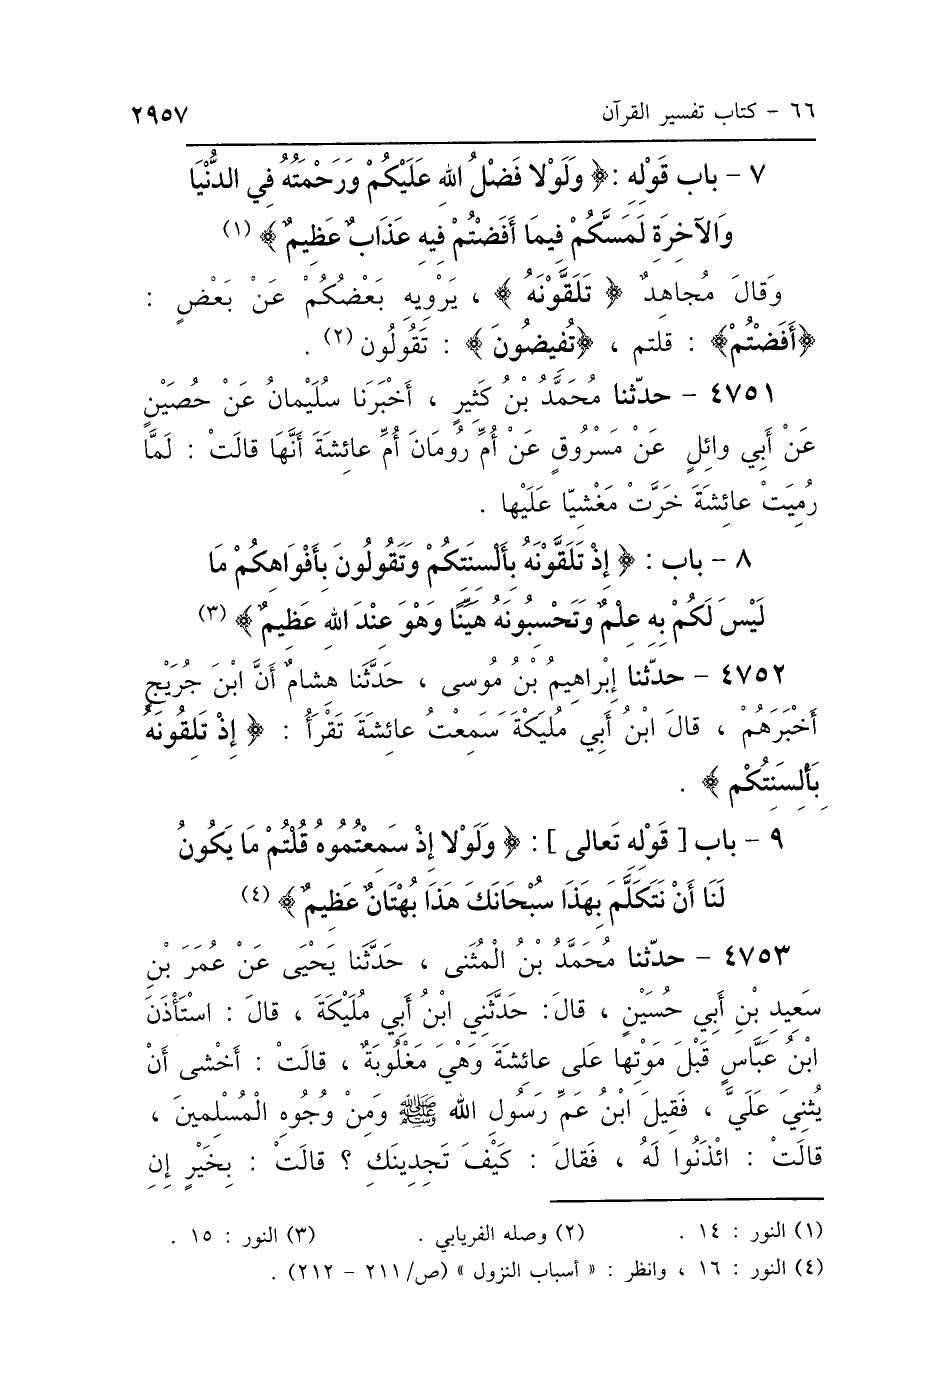 ٦٦ - كتاب تفسير القرآن ٢٩٥٧
٧ - باب قَوْلِهِ : ﴿ وَلَوْلا فَضْلُ اللهِ عَلَيْكُمْ وَرَحْمَتُهُ فِي الدُّنْيَا
وَالآخِرَةِ لَمَسَّكُمْ فِيمَا أَفَضْتُمْ فِيهِ عَذَابٌ عَظِيمٌ ﴾ (١)
وَقالَ مُجاهِدٌ ﴿ تَلَقَّوْنَهُ ﴾ ، يَرْوِيهِ بَعْضُكُمْ عَنْ بَعْضٍ :
﴿أَفَضْتُمْ﴾ : قلتم ، ﴿تُفِيضُونَ ﴾ : تَقُولُون (٢) .
٤٧٥١ - حدّثنا مُحَمَّدُ بْنُ كَثِيرٍ ، أَخْبَرَنا سُلَيْمانُ عَنْ حُصَيْنٍ
عَنْ أبِي وائِلٍ عَنْ مَسْرُوقٍ عَنْ أُمِّ رُومَانَ أُمِّ عائِشَةَ أَنَّها قالَتْ : لَمَّا
رُمِيَتْ عائِشَةَ خَرَّتْ مَغْشِيّا عَلَيْها .
٨ - باب : ﴿ إِذْ تَلَقَّوْنَهُ بِأَلْسِنَتِكُمْ وَتَقُولُونَ بِأَفْوَاهِكُمْ مَا
لَيْسَ لَكُمْ بِهِ عِلْمٌ وَتَحْسِبُونَهُ هَيِّنًا وَهْوَ عِنْدَ اللهِ عَظِيمٌ ﴾ (٣)
٤٧٥٢ - حدّثنا إِبْراهِيمُ بْنُ مُوسى ، حَدَّثَنا هِشامٌ أنَّ ابْنَ جُرَيْجٍ
أَخْبَرَهُمْ ، قالَ ابْنُ أبِي مُلَيْكَةَ سَمِعْتُ عائِشَةَ تَقْرَأُ : ﴿ إِذْ تَلِقُونَهُ
بَألِسَنَتُكُمْ ﴾ .
٩ - باب [ قَوْلِهِ تَعالى ] : ﴿ وَلَوْلا إِذْ سَمِعْتُمُوهُ قُلْتُمْ مَا يَكُونُ
لَنَا أَنْ نَتَكَلَّمَ بِهَذَا سُبْحَانَكَ هَذَا بُهْتَانٌ عَظِيمٌ ﴾ (٤)
٤٧٥٣ - حدّثنا مُحَمَّدُ بْنُ الْمُثَنى ، حَدَّثَنا يَحْيَى عَنْ عُمَرَ بْنِ
سَعِيدِ بْنِ أبِي حُسَيْنٍ ، قالَ: حَدَّثَنِي ابْنُ أبِي مُلَيْكَةَ ، قالَ : اسْتَأْذَنَ
ابْنُ عَبَّاسٍ قَبْلَ مَوْتِها عَلى عائِشَةَ وَهْيَ مَغْلُوبَةٌ ، قالَتْ : أخْشى أنْ
يُثْنِيَ عَلَيَّ ، فَقِيلَ ابْنُ عَمِّ رَسُولِ اللهِ ﷺ وَمِنْ وُجُوهِ الْمُسْلِمِينَ ،
قالَتْ : ائْذَنُوا لَهُ ، فَقالَ : كَيْفَ تَجِدِينَكِ ؟ قالَتْ : بِخَيْرٍ إنِ
(١) النور : ١٤ . (٢) وصله الفريابي . (٣) النور : ١٥ .
(٤) النور : ١٦ ، وانظر : « أسباب النزول » (ص/ ٢١١ - ٢١٢) .